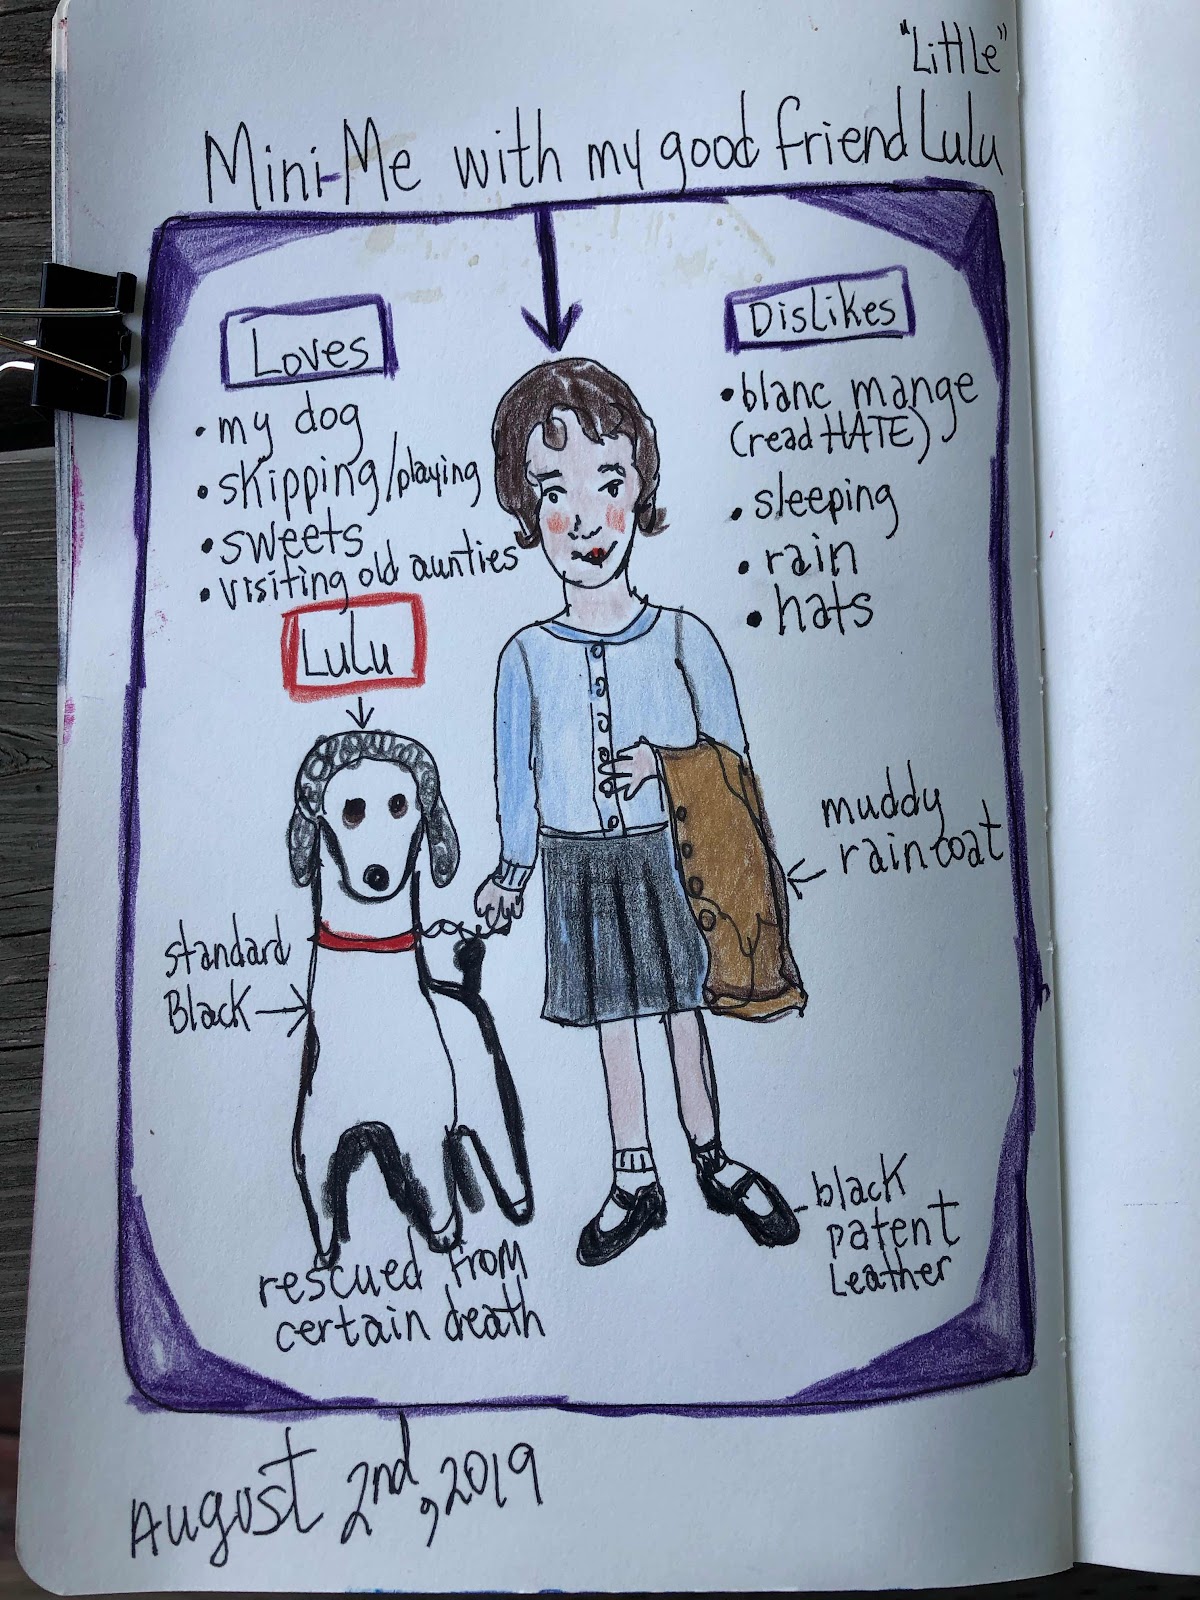 "Little"
Mini-Me with my good friend Lulu
Loves
• my dog
• skipping/playing
• sweets
• visiting old aunties
Dislikes
• blanc mange
(read HATE)
• sleeping
• rain
• hats
Lulu
muddy
raincoat
standard
Black
black
patent
Leather
rescued from
certain death
August 2nd, 2019